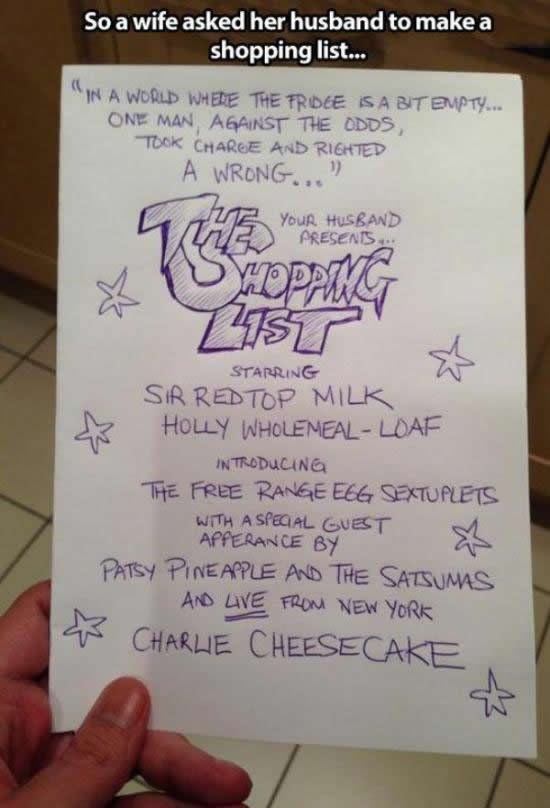 So a wife asked her husband to make a
shopping list...
"IN A WORLD WHERE THE FRIDGE IS A BIT EMPTY...
ONE MAN, AGAINST THE ODDS,
TOOK CHARGE AND RIGHTED
A WRONG..."
YOUR HUSBAND
PRESENTS...
THE
SHOPPING
LIST
STARRING
SIR RED TOP MILK
HOLLY WHOLEMEAL-LOAF
INTRODUCING
THE FREE RANGE EGG SEXTUPLETS
WITH A SPECIAL GUEST
APPERANCE BY
PATSY PINEAPPLE AND THE SATSUMAS
AND LIVE FROM NEW YORK
CHARLIE CHEESECAKE